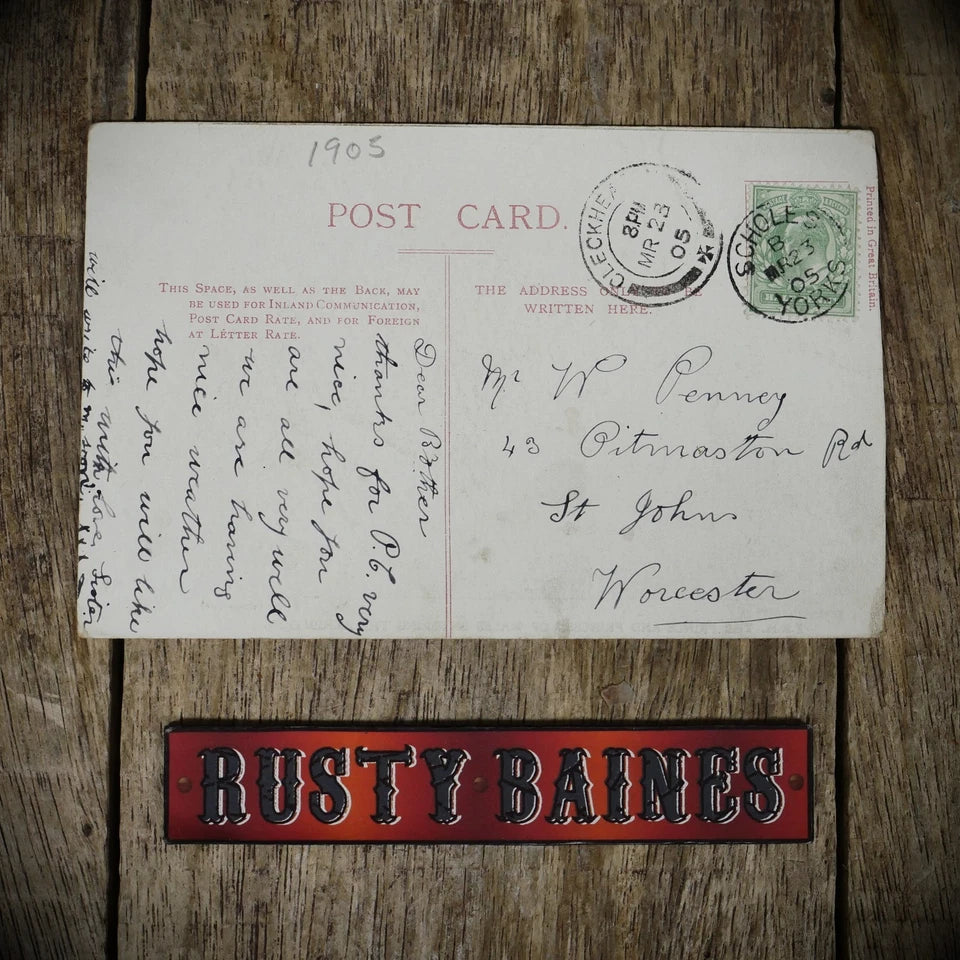 1905
POST CARD.
THIS SPACE, AS WELL AS THE BACK, MAY
BE USED FOR INLAND COMMUNICATION,
POST CARD RATE, AND FOR FOREIGN
AT LETTER RATE.
THE ADDRESS
WRITTEN HERE.
Printed in Great Britain.
CLECKHEA
8PM
MR 23
05
SCHOLES
B O
MR 23
05
YORKS
Mr W Penney
43 Pitmaston Rd
St Johns
Worcester
Dear Brother
thanks for P.C. very
nice, hope you
are all very well
we are having
nice weather
hope you will like
this with love Sister
will write soon
RUSTY BAINES